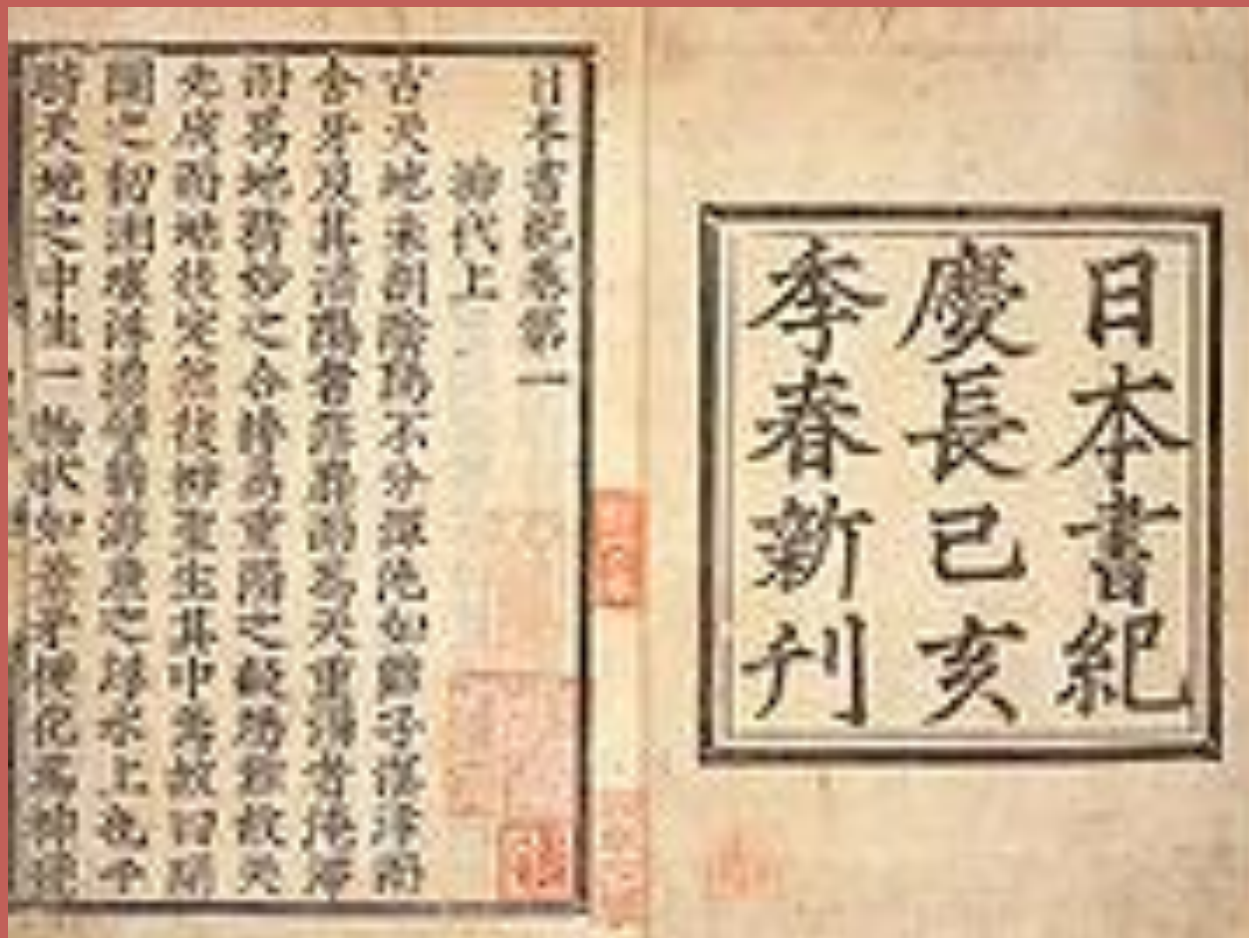 日本書紀
慶長己亥
季春新刊
日本書紀巻第一
神代上
古天地未剖陰陽不分渾沌如鷄子溟涬而
含牙及其清陽者薄靡而爲天重濁者淹滯
而爲地精妙之合搏易重濁之凝竭難故天
先成而地後定然後神聖生其中焉故曰開
闢之初洲壤浮漂譬猶游魚之浮水上也于
時天地之中生一物狀如葦牙便化爲神號